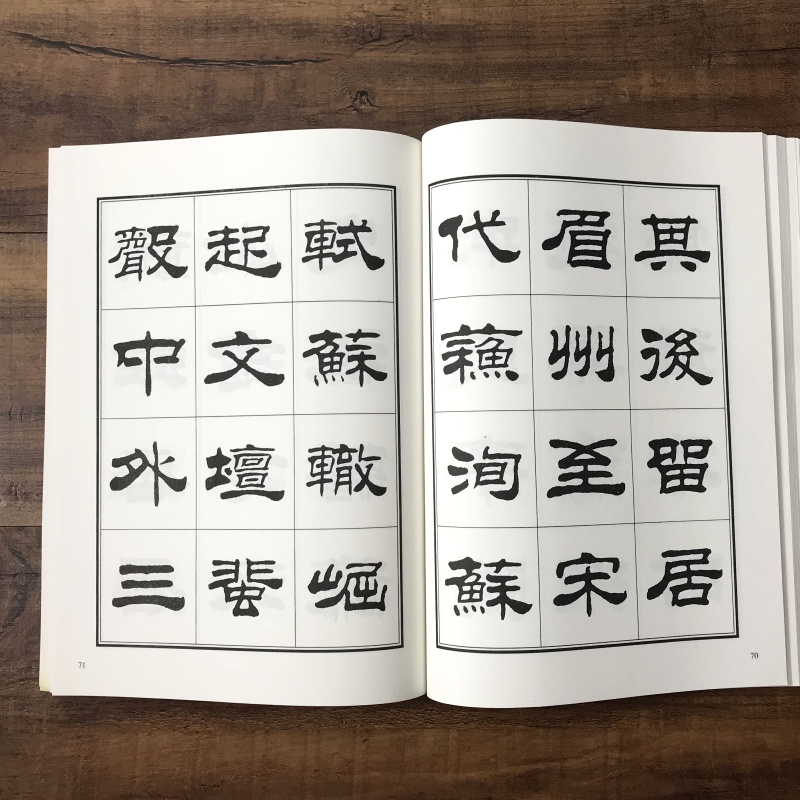 其後留居
眉州至宋
代蘓洵蘇
70
軾蘇轍崛
起文壇蜚
聲中外三
71